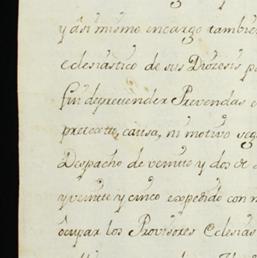 y asi mismo encargo tambie
Eclesiástico de sus Diozesis p
fin depretender Prevendas
pretexto, causa, ni motivo seg
Despacho de veinte y dos de
y veinte y cinco expedido con
ôcupar los Provisores Eclesias